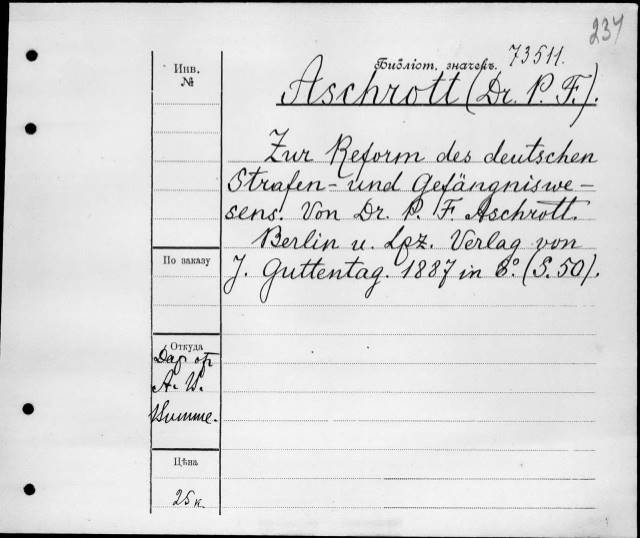 237
Инв.
№
Библіот. значекъ. 73511.
Aschrott (Dr. P. F.).
Zur Reform des deutschen
Strafen- und Gefängniswe-
sens. Von Dr. P. F. Aschrott.
Berlin u. Lpz. Verlag von
J. Guttentag. 1887 in 8º. (S. 50).
По заказу
Откуда
Дар
А.
Цѣна
25 к.